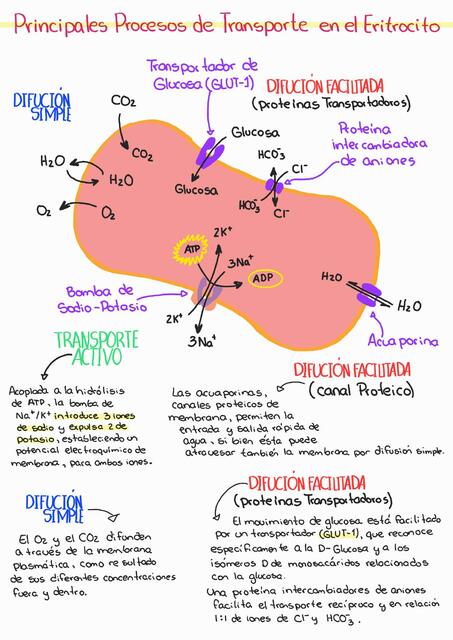 Principales Procesos de Transporte en el Eritrocito
Transportador de
Glucosa (GLUT-1)
DIFUCIÓN
SIMPLE
CO2
DIFUCIÓN FACILITADA
(proteínas Transportadoros)
Glucosa
Proteína
intercambiadora
de aniones
HCO-3
Cl-
CO2
H2O
H2O
Glucosa
HCO-3
Cl-
O2
O2
2K+
ATP
3Na+
ADP
H2O
H2O
Bomba de
Sodio-Potasio
2K+
3Na+
Acuaporina
TRANSPORTE
ACTIVO
DIFUCIÓN FACILITADA
(canal Proteico)
Acoplada a la hidrólisis
de ATP, la bomba de
Na+/K+ introduce 3 iones
de sodio y expulsa 2 de
potasio, estableciendo un
potencial electroquímico de
membrana, para ambos iones.
Las acuaporinas,
canales proteicos de
membrana, permiten la
entrada y salida rápida de
agua, si bien ésta puede
atravesar también la membrana por difusión simple.
DIFUCIÓN
SIMPLE
El O2 y el CO2 difunden
a través de la membrana
plasmática, como resultado
de sus diferentes concentraciones
fuera y dentro.
DIFUCIÓN FACILITADA
(proteínas Transportadoros)
El movimiento de glucosa está facilitado
por un transportador (GLUT-1), que reconoce
específicamente a la D-Glucosa y a los
isómeros D de monosacáridos relacionados
con la glucosa.
Una proteína intercambiadores de aniones
facilita el transporte recíproco y en relación
1:1 de iones de Cl- y HCO-3.